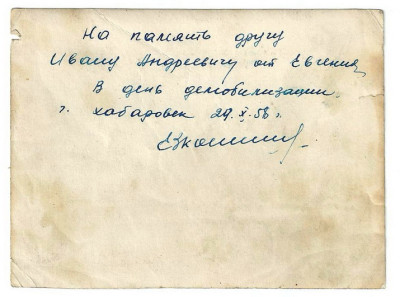 На память другу
Ивану Андреевичу от Евгения
В день демобилизации.
г. Хабаровск 29.X.58 г.